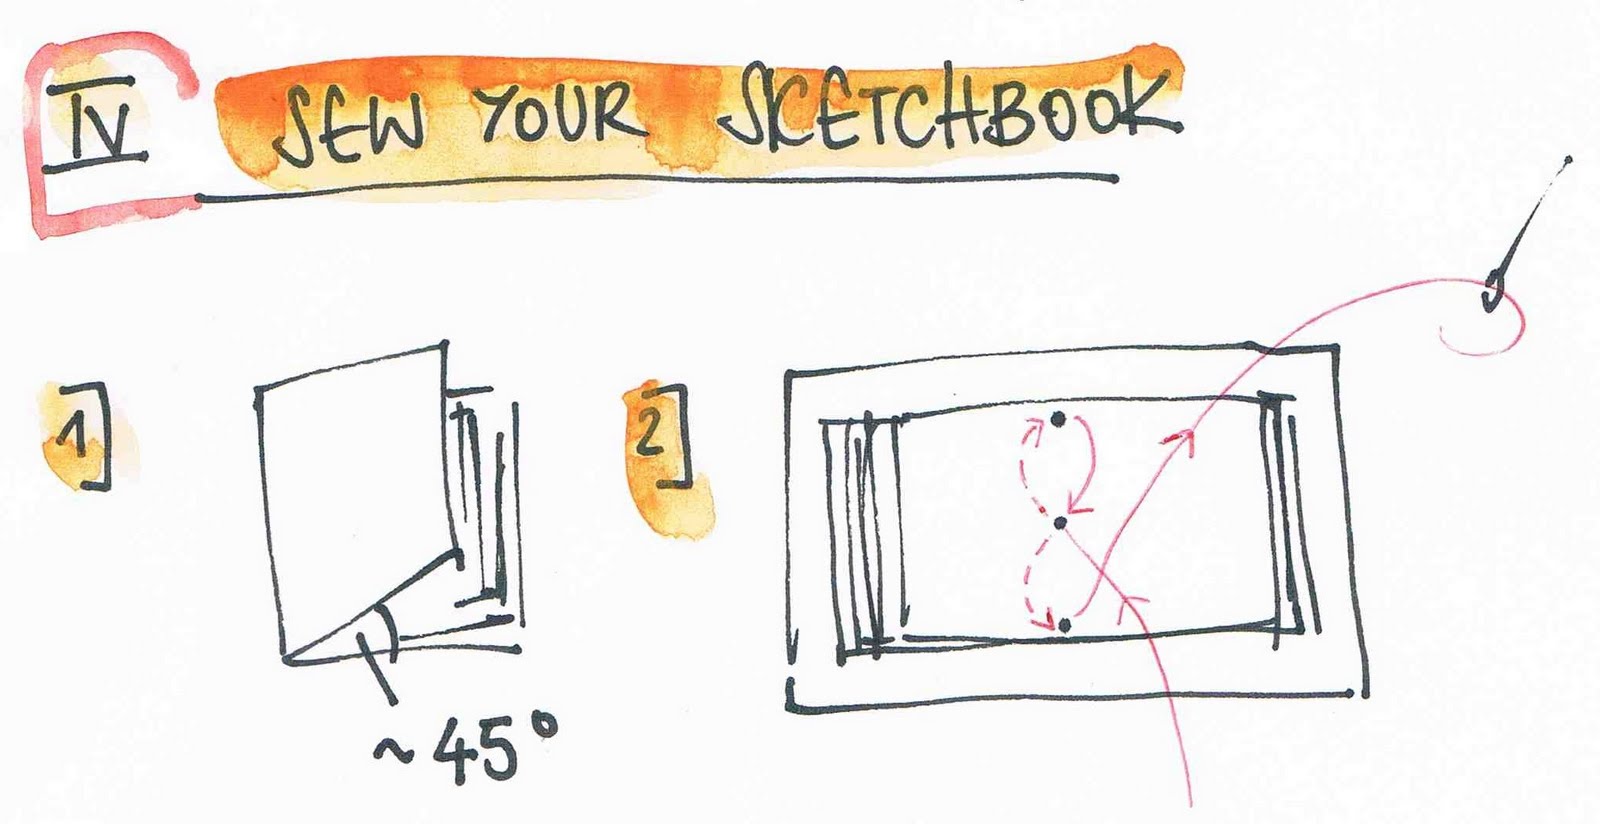 IV SEW YOUR SKETCHBOOK
1]
2]
~45°